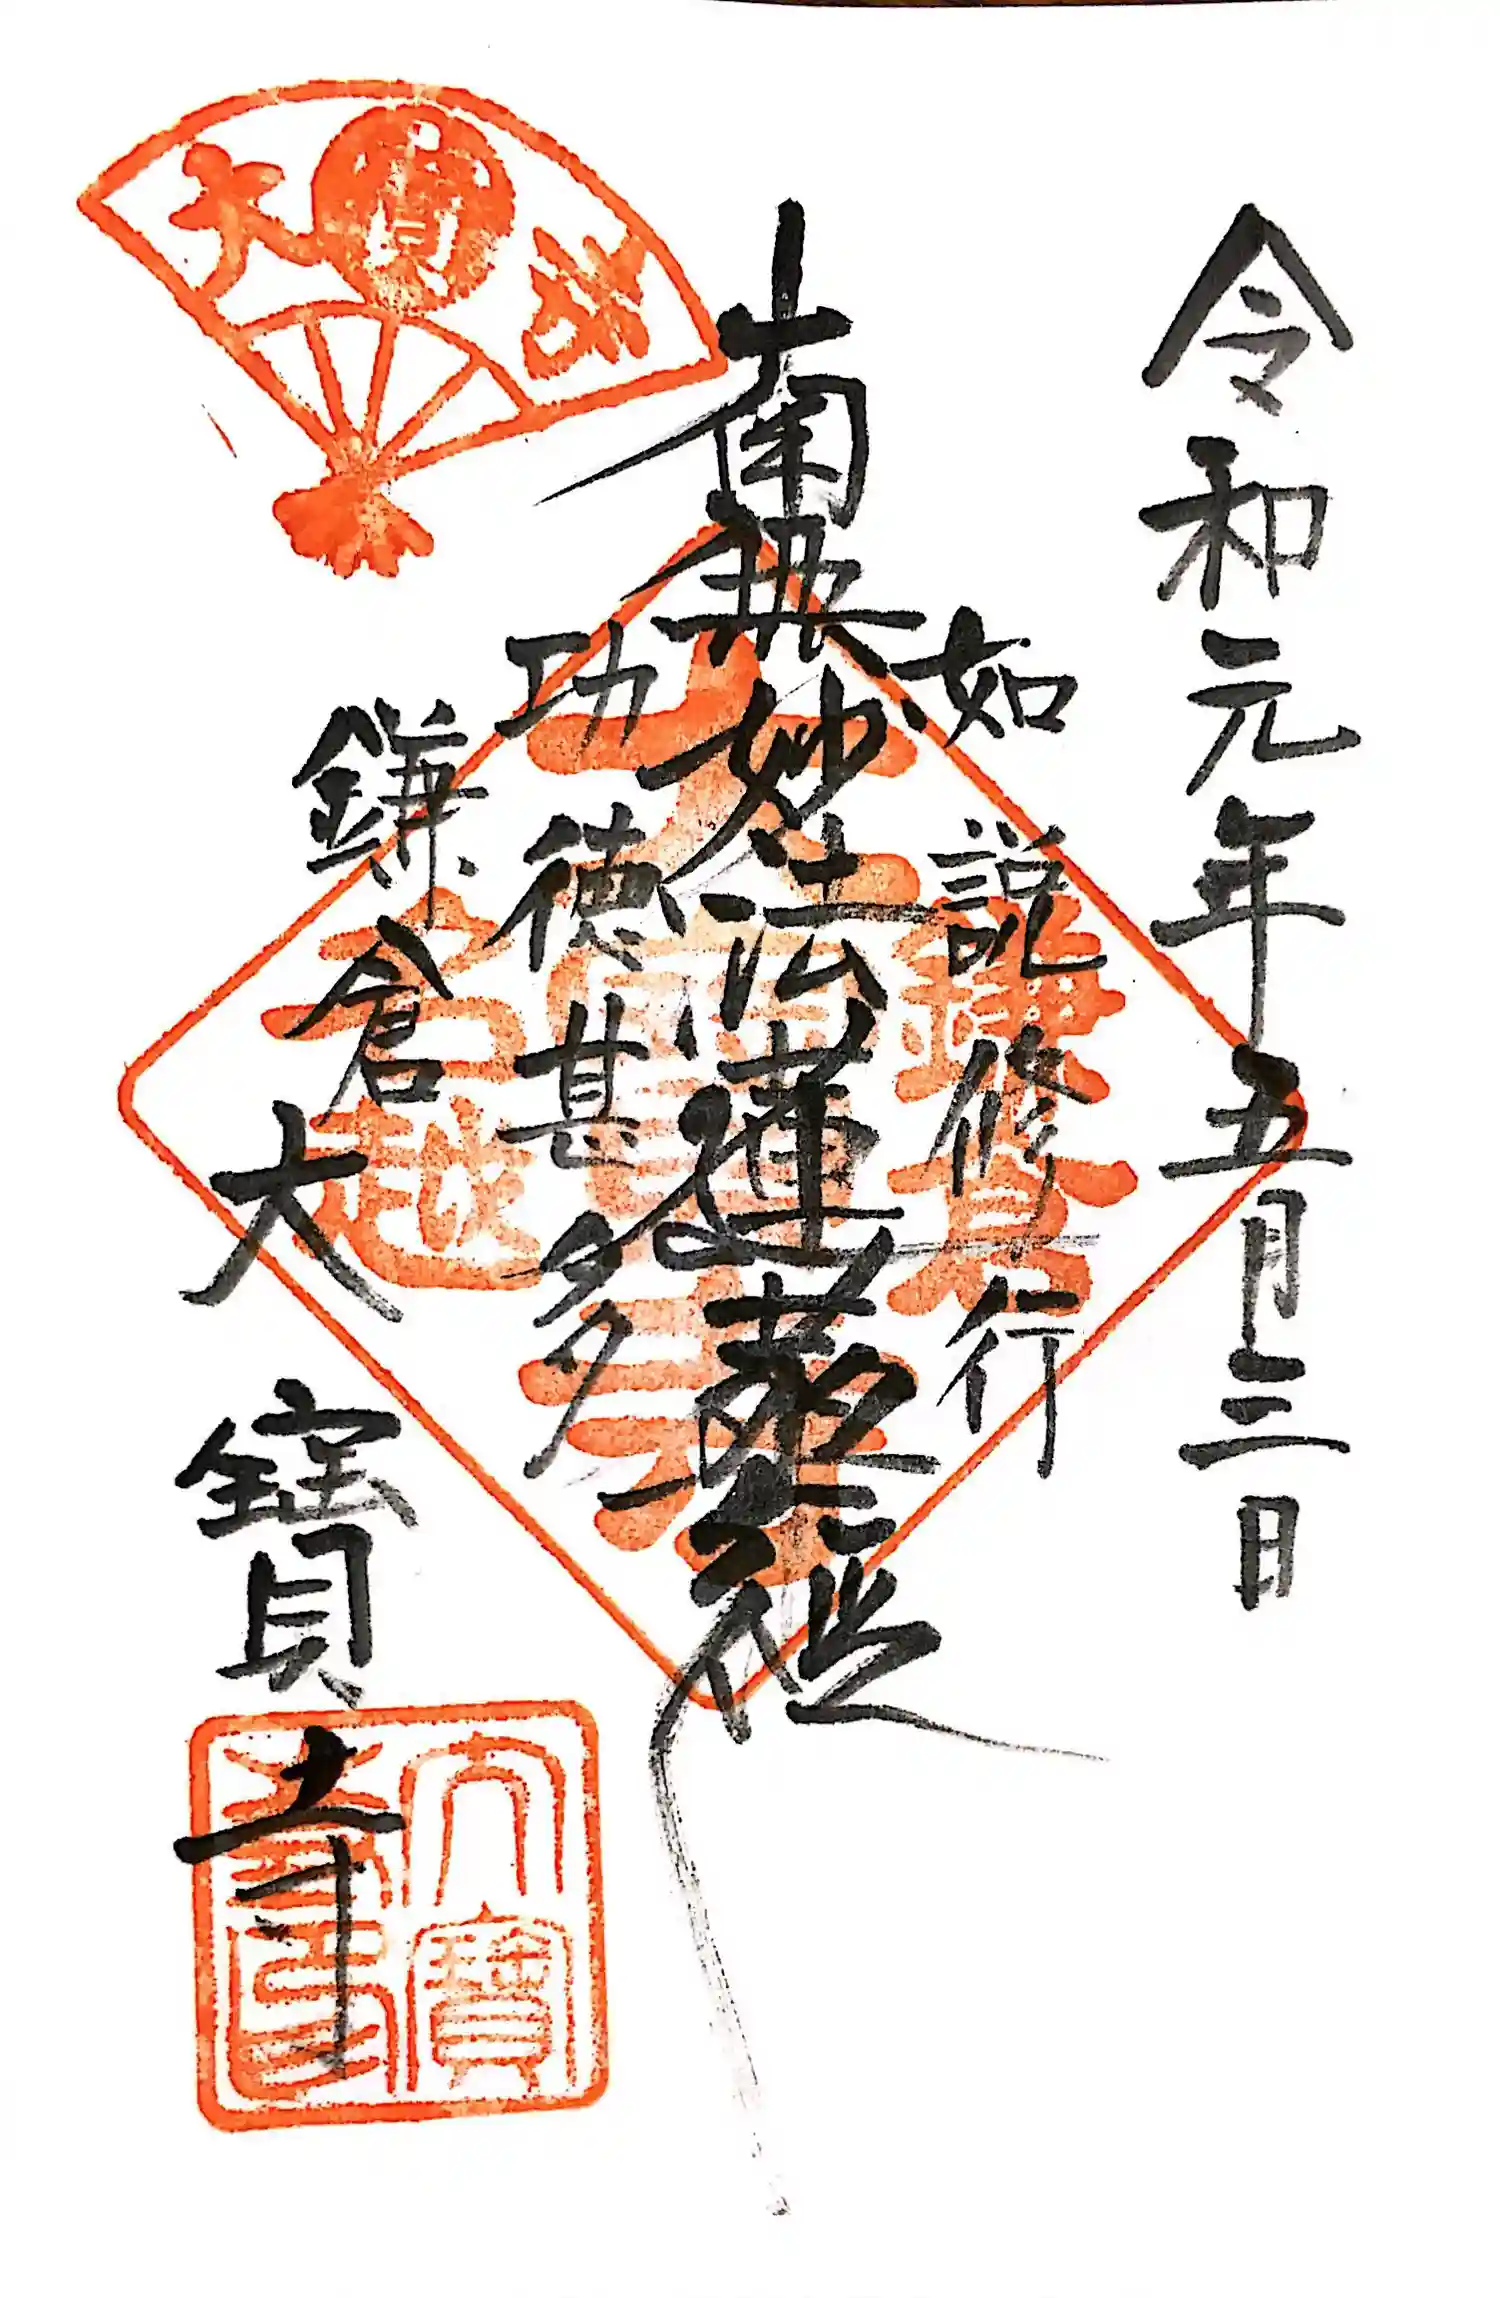 令和元年五月三日
如説修行
南無妙法蓮華経
功徳甚多
鎌倉大寶寺
大寶
大寶寺印